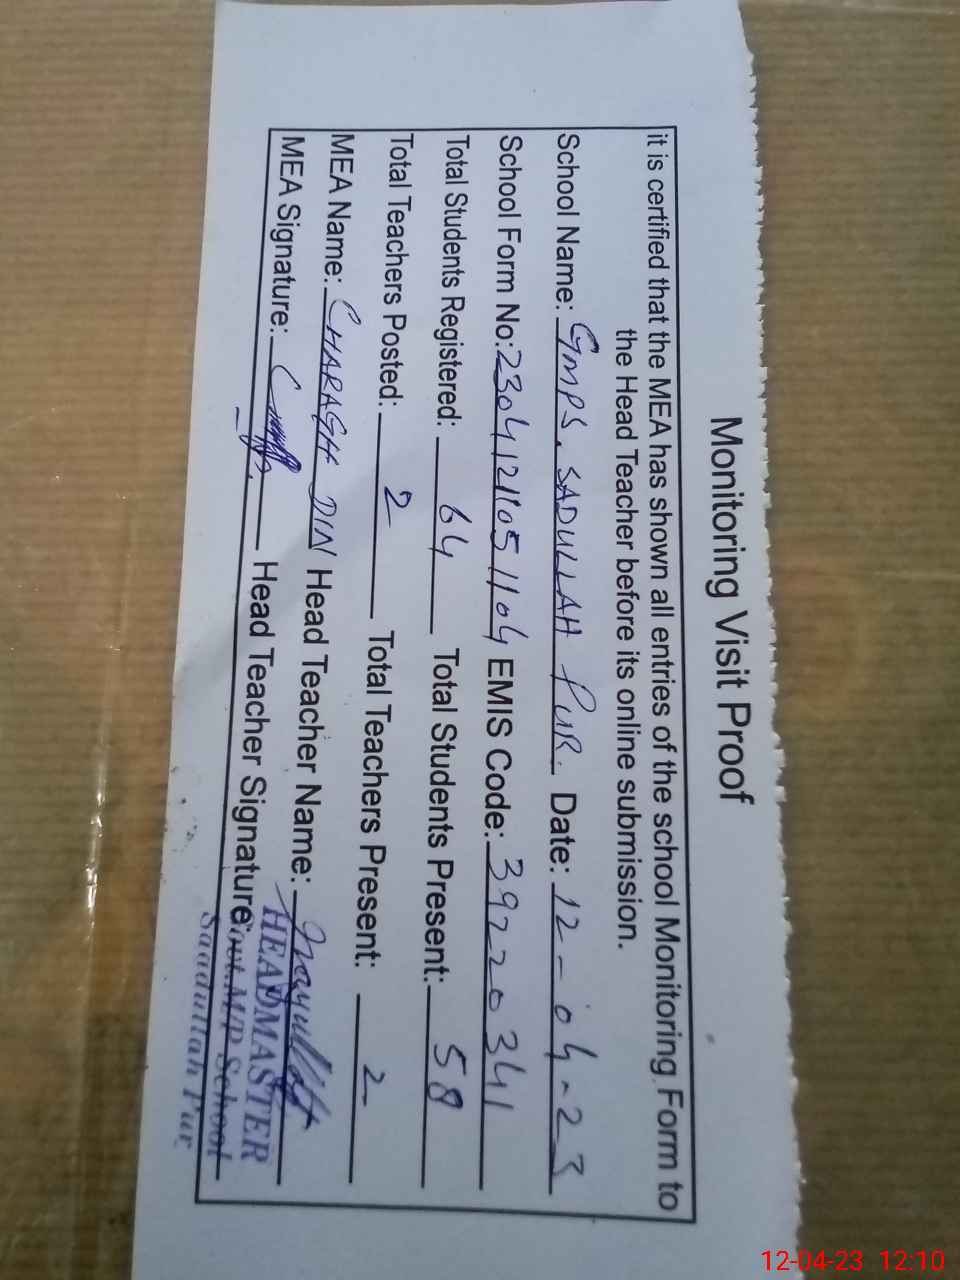 Monitoring Visit Proof
it is certified that the MEA has shown all entries of the school Monitoring Form to
the Head Teacher before its online submission.
School Name: GMPS. SADULLAH PUR. Date: 12-04-23
School Form No: 23041211051104 EMIS Code: 39220341
Total Students Registered: 64 Total Students Present: 58
Total Teachers Posted: 2 Total Teachers Present: 2
MEA Name: CHARAGH DIN Head Teacher Name:
MEA Signature: Head Teacher Signature:
HEADMASTER
Govt. M/P School
Saadullah Pur
12-04-23 12:10